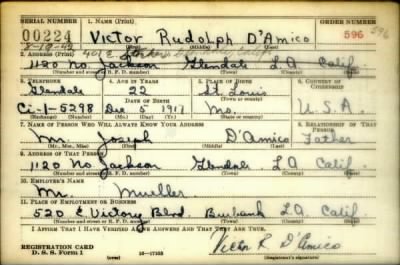 SERIAL NUMBER 1. NAME (Print) ORDER NUMBER
00224 Victor Rudolph D'Amico 596 596
8-19-42 401 E.
(First) (Middle) (Last)
2. ADDRESS (Print)
1120 No. Jackson Glendale L A Calif.
(Number and street or R. F. D. number) (Town) (County) (State)
3. TELEPHONE 4. AGE IN YEARS 5. PLACE OF BIRTH 6. COUNTRY OF CITIZENSHIP
Glendale 22 St. Louis
DATE OF BIRTH (Town or county)
Ci-1-5298 Dec 5 1917 Mo. U.S.A.
(Exchange) (Number) (Mo.) (Day) (Yr.) (State or country)
7. NAME OF PERSON WHO WILL ALWAYS KNOW YOUR ADDRESS 8. RELATIONSHIP OF THAT PERSON
Mr. Joseph D'Amico Father
(Mr., Mrs., Miss) (First) (Middle) (Last)
9. ADDRESS OF THAT PERSON
1120 No Jackson Glendale L A Calif.
(Number and street or R. F. D. number) (Town) (County) (State)
10. EMPLOYER'S NAME
Mr. Mueller
11. PLACE OF EMPLOYMENT OR BUSINESS
520 E. Victory Blvd. Burbank L A Calif.
(Number and street or R. F. D. number) (Town) (County) (State)
I AFFIRM THAT I HAVE VERIFIED ABOVE ANSWERS AND THAT THEY ARE TRUE.
REGISTRATION CARD Victor R D'Amico
D. S. S. Form 1 (over) (Registrant's signature)